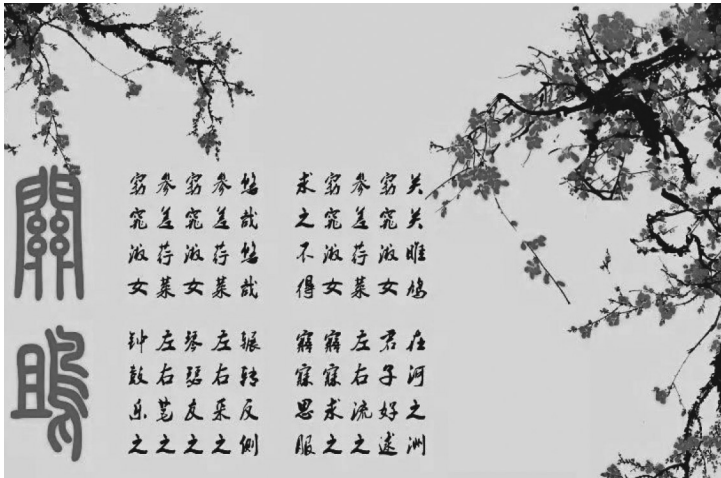 关关雎鸠
在河之洲
窈窕淑女
君子好逑
参差荇菜
左右流之
窈窕淑女
寤寐求之
求之不得
寤寐思服
悠哉悠哉
辗转反侧
参差荇菜
左右采之
窈窕淑女
琴瑟友之
参差荇菜
左右芼之
窈窕淑女
钟鼓乐之
關鴡